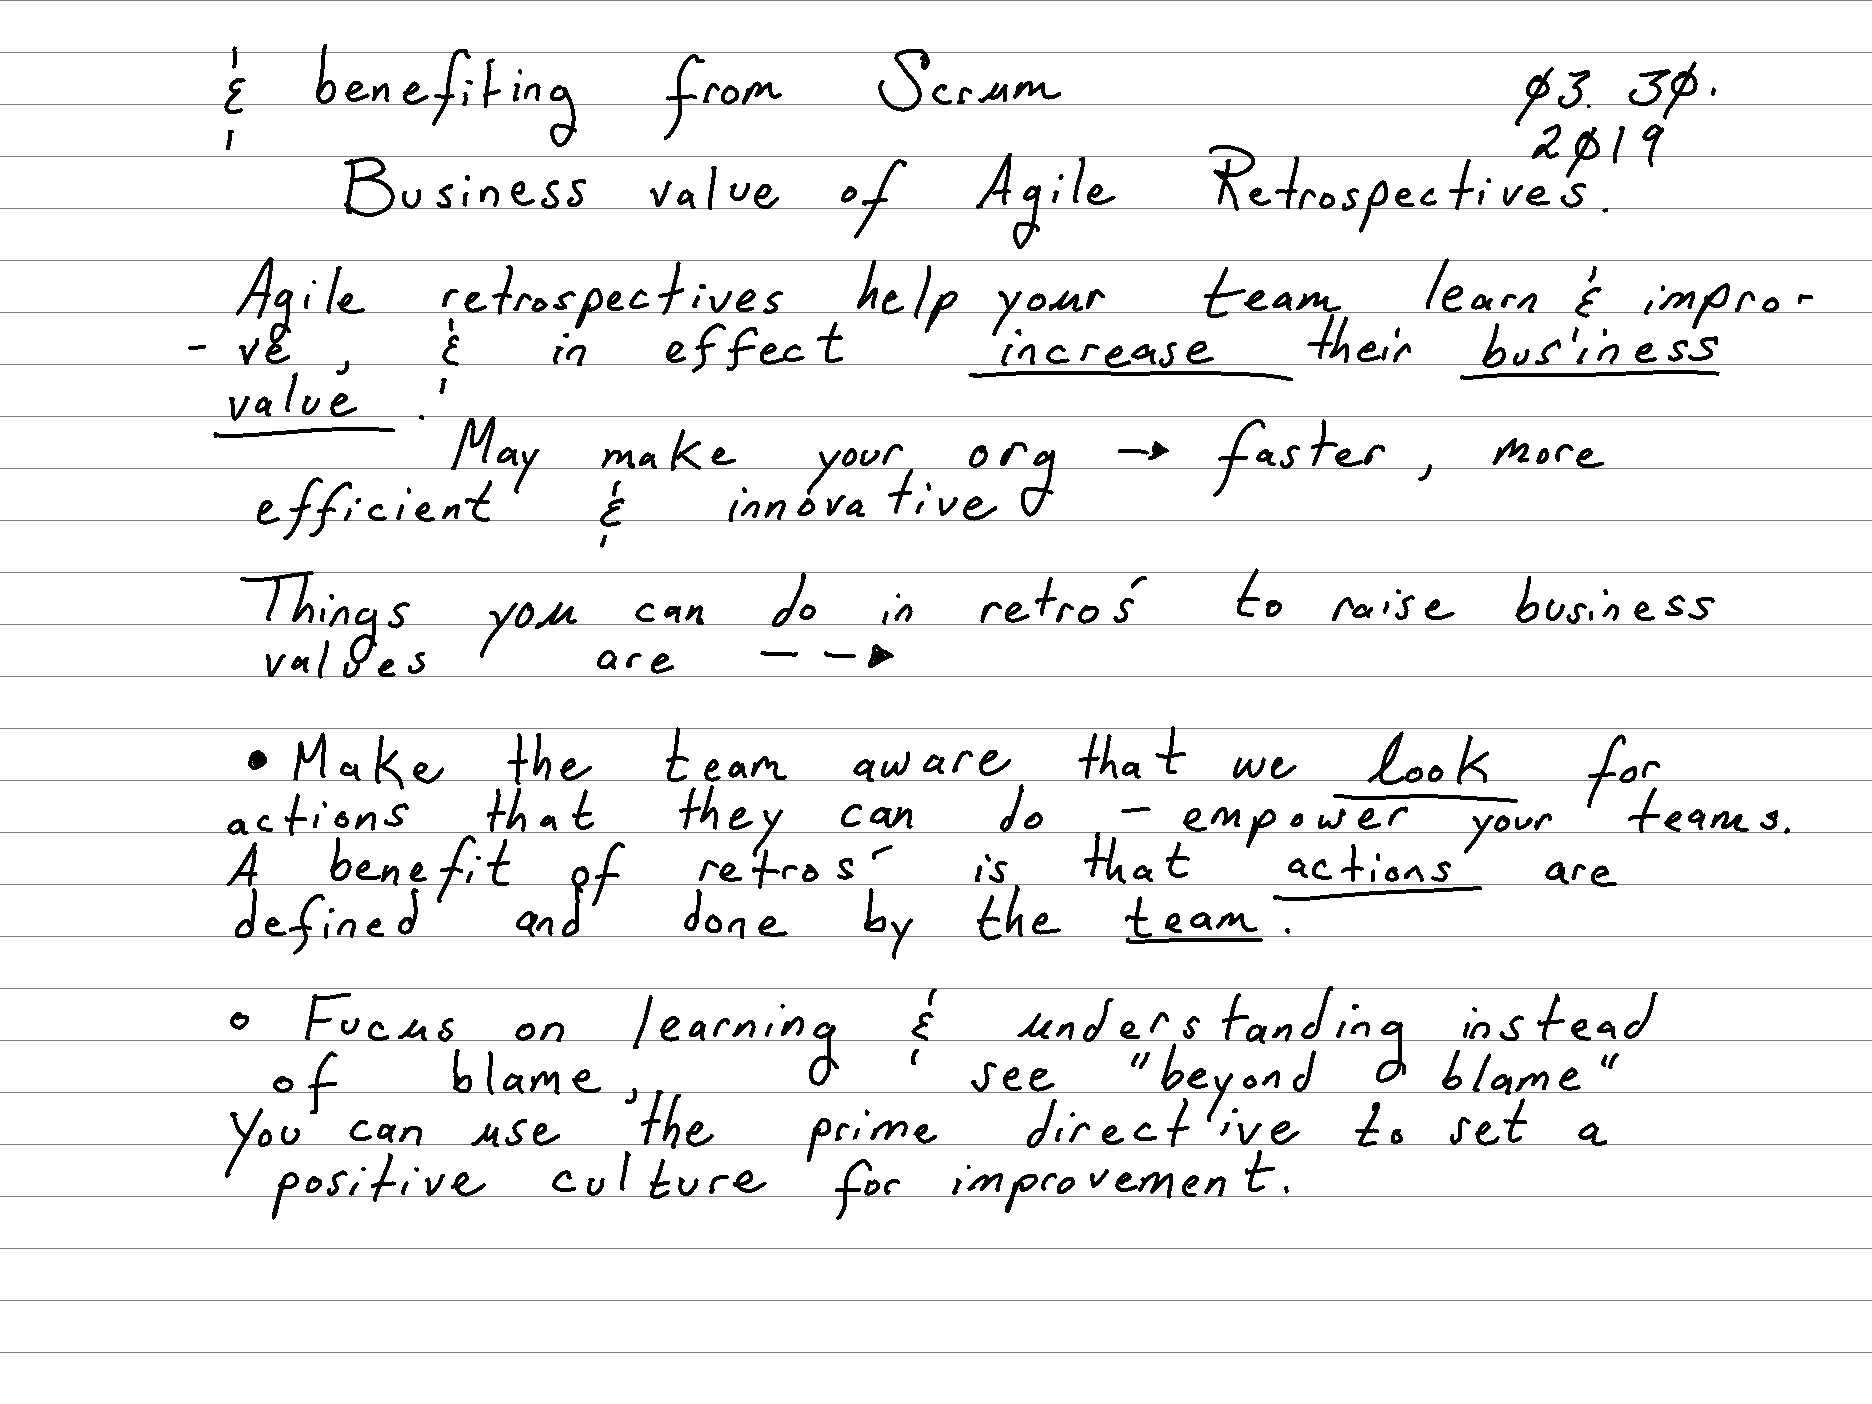 & benefiting from Scrum
Ø3. 3Ø.
2Ø19
Business value of Agile Retrospectives.
Agile retrospectives help your team learn & impro-
- ve, & in effect increase their business
value.
May make your org → faster, more
efficient & innovative
Things you can do in retros' to raise business
values are --→
• Make the team aware that we look for
actions that they can do - empower your teams.
A benefit of retros' is that actions are
defined and done by the team.
∘ Fucus on learning & understanding instead
of blame, see "beyond blame"
You can use the prime directive to set a
positive culture for improvement.